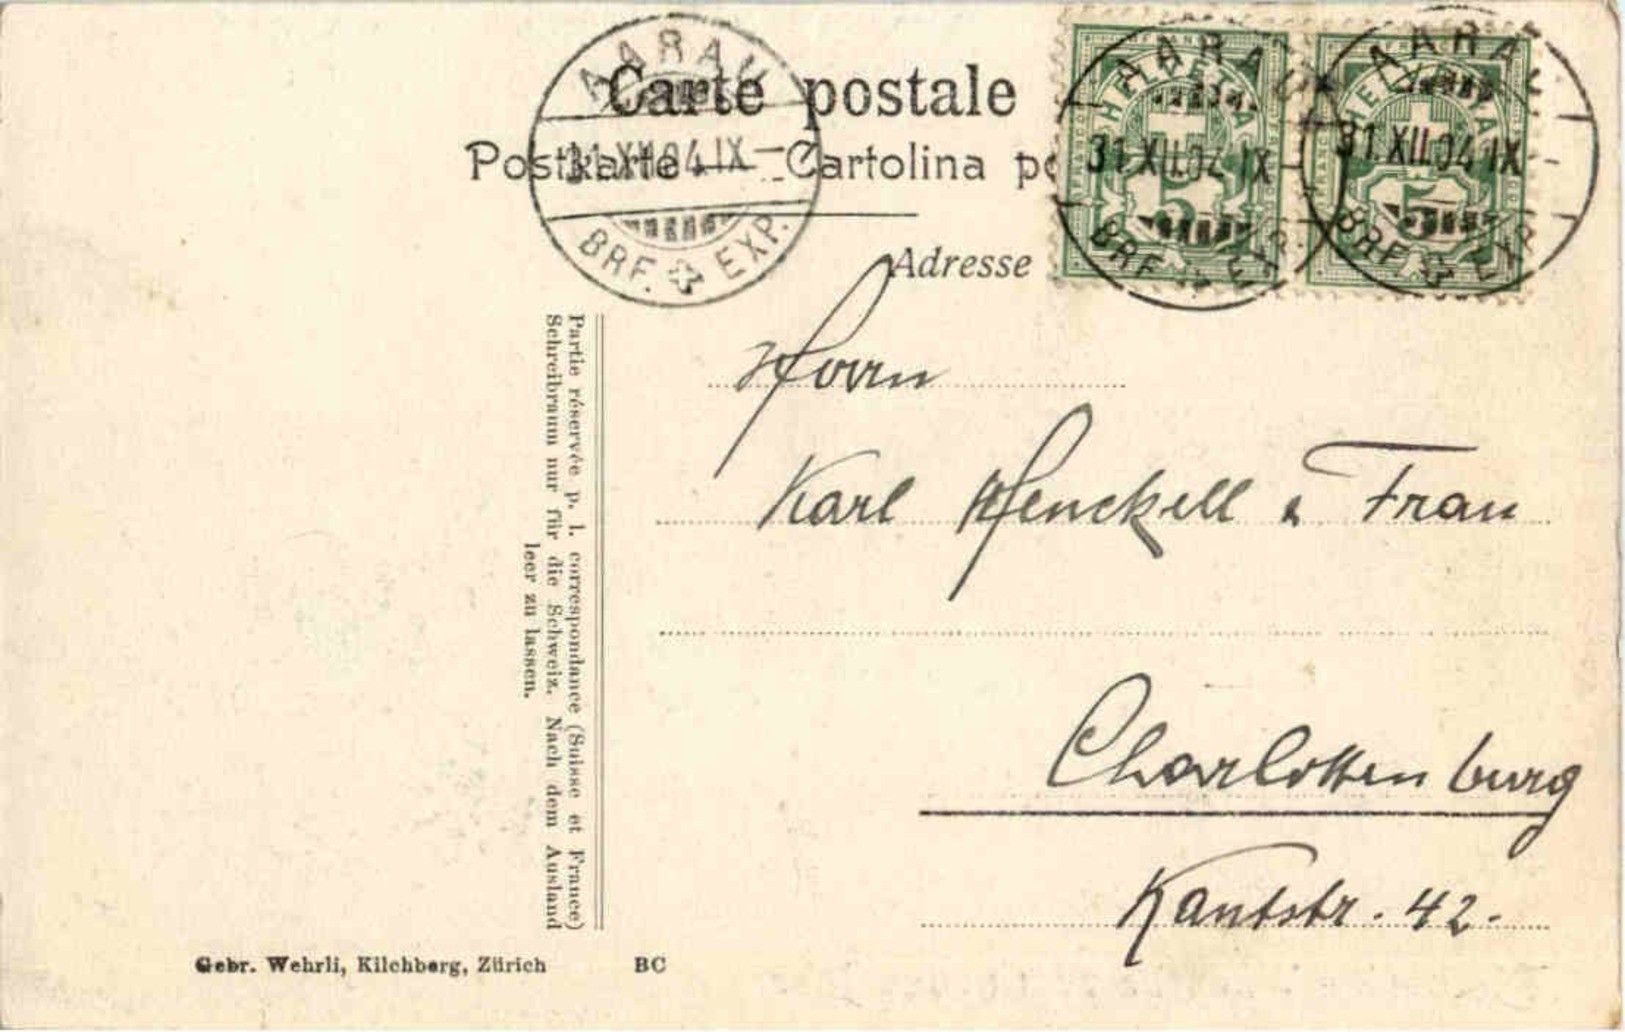 Carte postale
Postkarte — Cartolina po
Adresse
AARAU
31.XII.04.IX
BRF. EXP.
AARAU
31.XII.04.IX
BRF. EXP.
AARAU
31.XII.04.IX
BRF. EXP.
HELVETIA
FRANCO
5
HELVETIA
FRANCO
5
Herrn
Karl Henckell & Frau
Charlottenburg
Kantstr. 42.
Partie réservée p. l. correspondance (Suisse et France)
Schreibraum nur für die Schweiz. Nach dem Ausland
leer zu lassen.
Gebr. Wehrli, Kilchberg, Zürich
BC